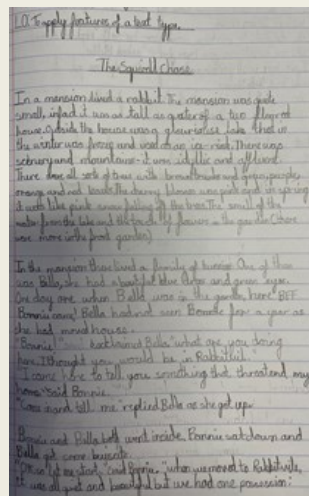 L.O. To apply features of a text type.
The Squirell Chase
In a mansion lived a rabbit. The mansion was quite
small, infact it was as tall as quater of a two floored
house. Outside the house was a glourwise lake that in
the winter was frozen and used as an ice-rink. There was
scenery and mountains - it was idyllic and
There were all sorts of trees with brown trunks and green, purple,
orange and red leaves. The cherry blossom was pink and in spring
it was like pink snow falling off the trees. The smell of the
water from the lake and the touch of flowers in the garden (there
were more in the front garden)
In the mansion there lived a family of bunnies. One of them
was Bella, she had a beautiful blue and green eyes.
One day when Bella was in the garden, here BFF
Bonnie came! Bella had not seen Bonnie for a year as
she had moved house.
"Bonnie!" exclaimed Bella "what are you doing
here. I thought you would be in Rabbitvill."
"I came here to tell you something that threatend my
home" said Bonnie.
"Come and tell me" replied Bella as she got up.
Bonnie and Bella both went inside. Bonnie sat down and
Bella got some
"Ok so let me start," said Bonnie, "when we moved to Rabbitville,
it was all quiet and beautiful but we had one possession: